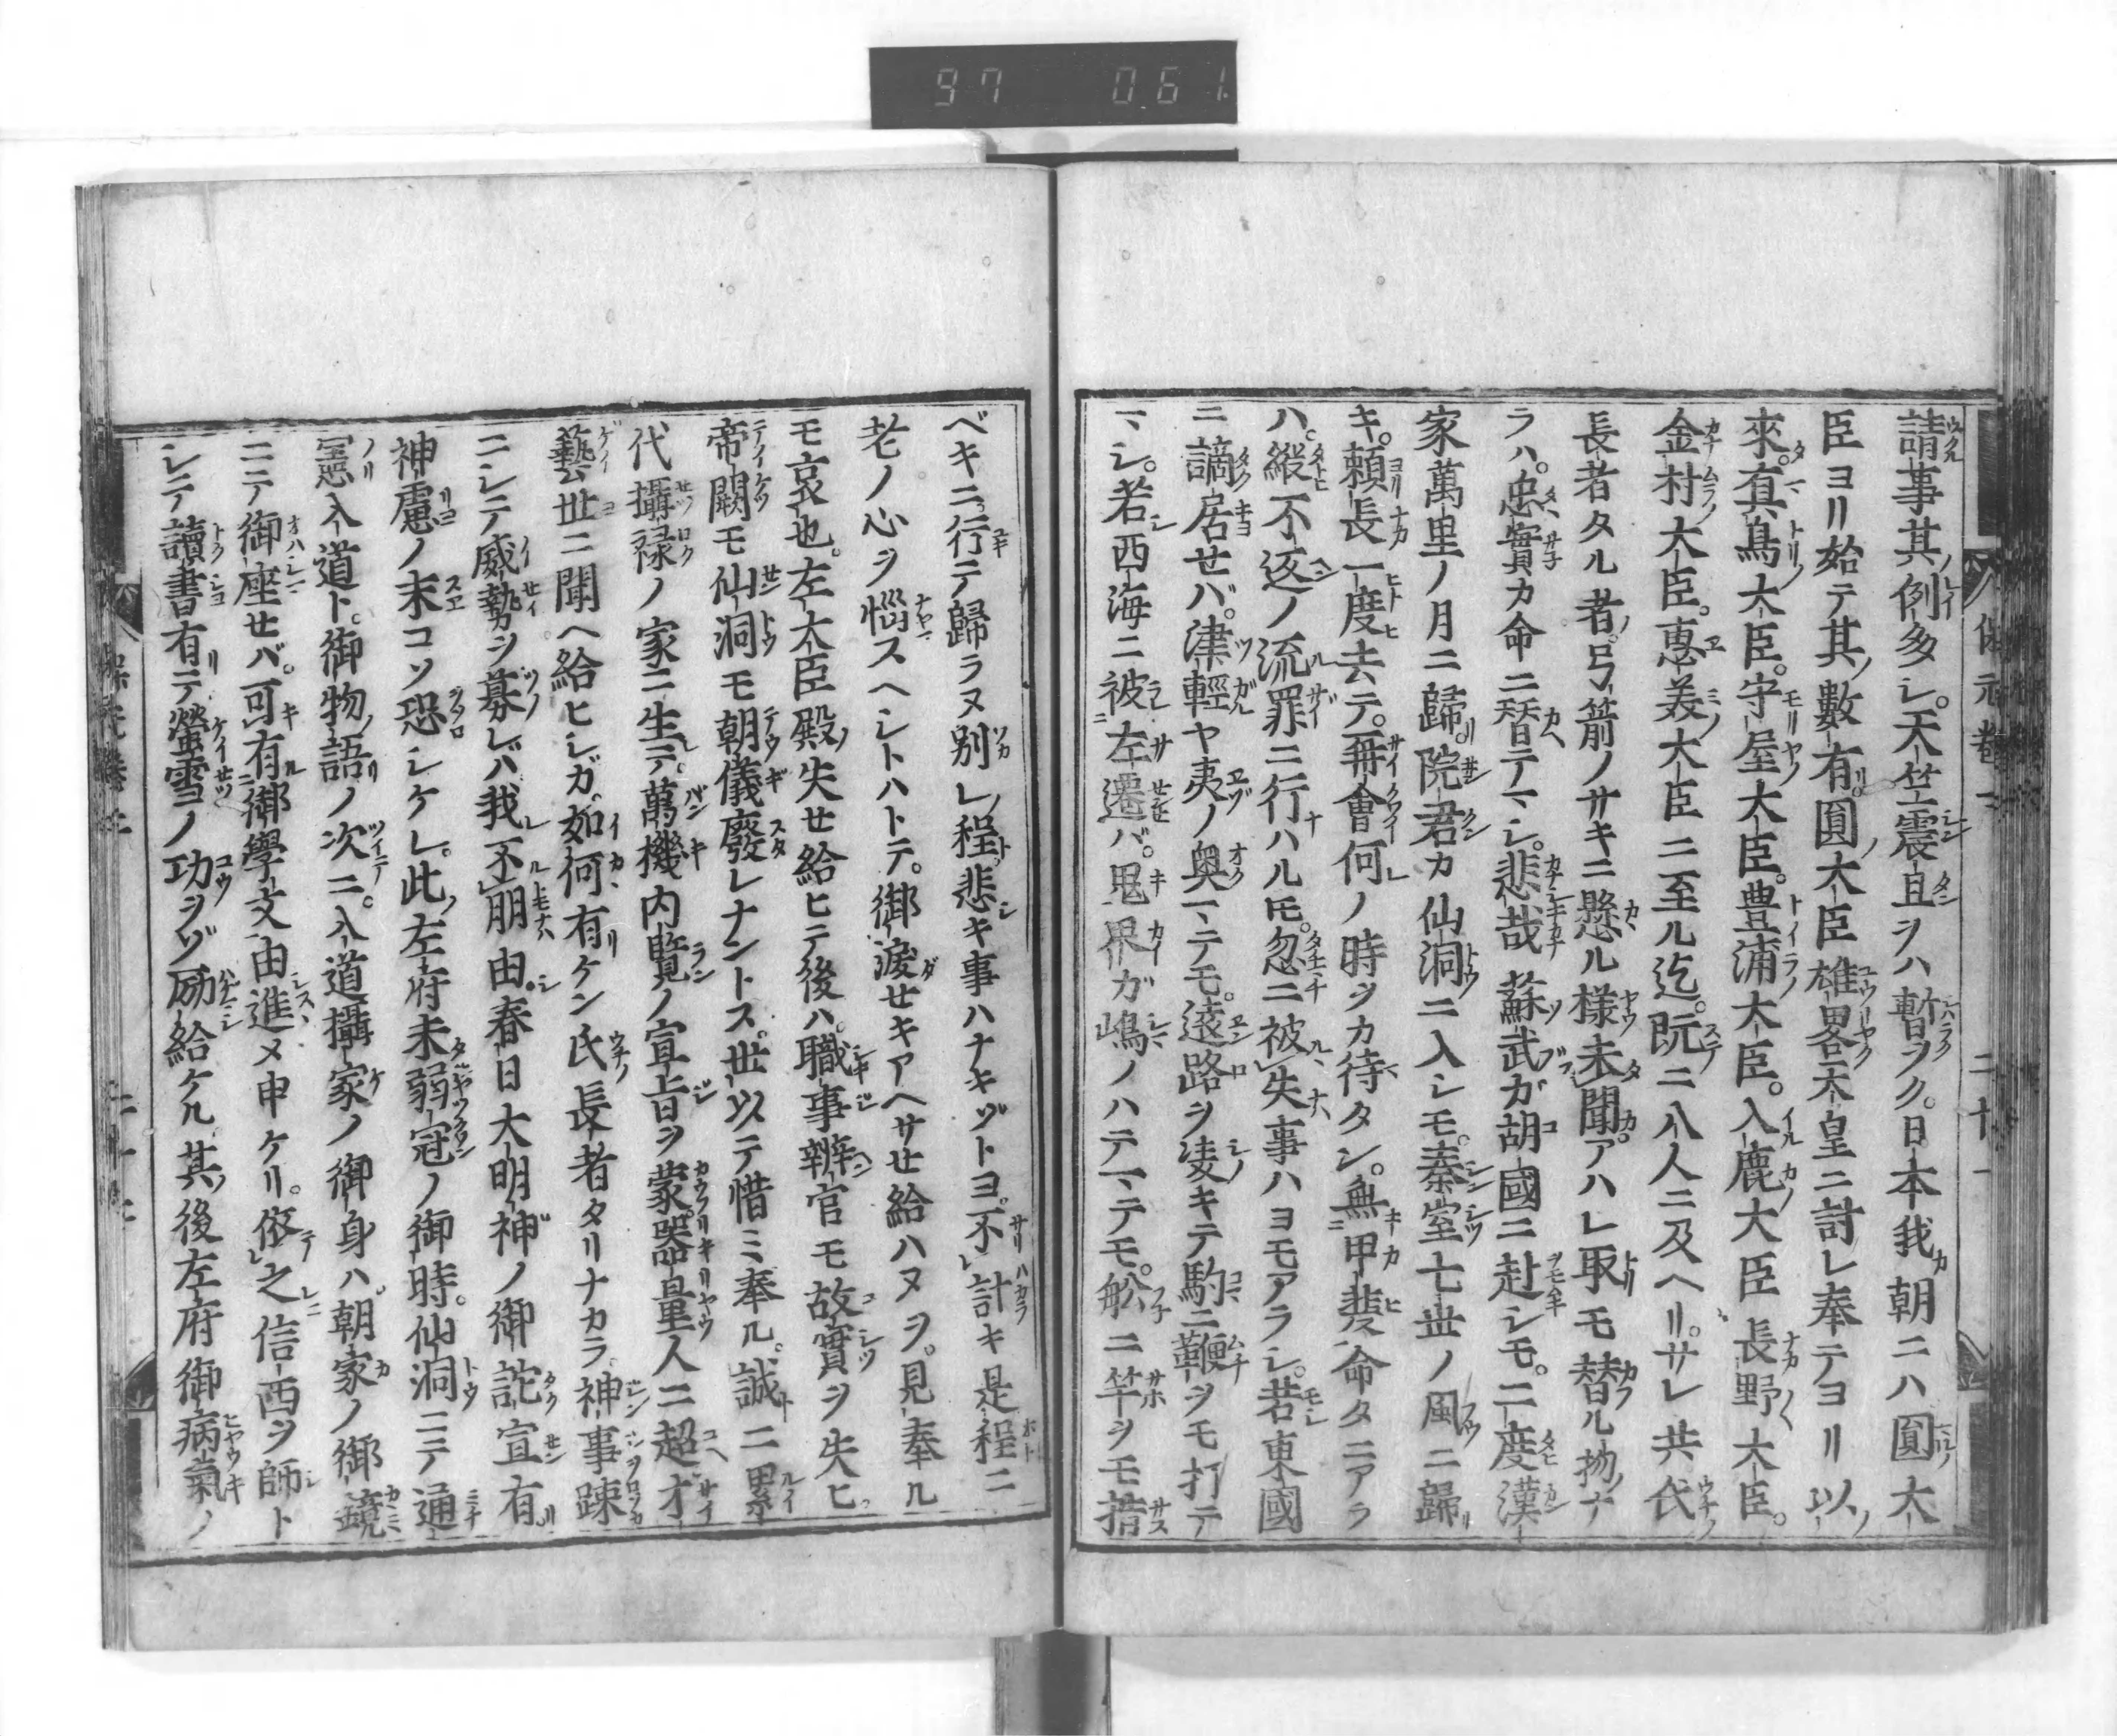 97 061
請事其例多シ。天竺震旦ヲハ暫ヲク。日本我朝ニハ圓大
臣ヨリ始テ其數有。圓大臣雄畧天皇ニ討レ奉テヨリ以
來。真鳥大臣。守屋大臣。豊浦大臣。入鹿大臣長野大臣。
金村大臣。惠美大臣ニ至ル迄。既ニ八人ニ及ヘリ。サレ共氏
長者タル者。弓箭ノサキニ懸ル樣未聞。アハレ取モ替ル物ナ
ラハ。忠實カ命ニ替テマシ。悲哉蘇武ガ胡國ニ赴シモ。二度漢
家萬里ノ月ニ歸。院君カ仙洞ニ入シモ。秦室七世ノ風ニ歸
キ。頼長一度去テ。再會何ノ時ヲカ待タン。無甲斐命タニアラ
ハ。縱不返ノ流罪ニ行ハル𪜈。忽ニ被失事ハヨモアラシ。若東國
ニ謫居せバ。津輕ヤ夷ノ奥マテモ。遠路ヲ凌キテ駒ニ鞭ヲモ打テ
マシ。若西海ニ被左遷バ。鬼界ガ嶋ノハテマテモ。舩ニ竿ヲモ措
ベキニ。行テ歸ラヌ別レ程悲キ事ハナキゾトヨ。不計キ是程ニ
老ノ心ヲ惱スヘシトハトテ。御涙せキアヘサせ給ハヌヲ。見奉ル
モ哀也。左大臣殿失せ給ヒテ後ハ。職事辨官モ故實ヲ失ヒ
帝闕モ仙洞モ朝儀廢レナントス。世以テ惜ミ奉ル。誠ニ累
代攝禄ノ家ニ生テ。萬機内覧ノ宣旨ヲ蒙。器量人ニ超才
藝世ニ聞ヘ給ヒシガ。如何有ケン氏長者タリナカラ。神事踈
ニシテ威勢ヲ募レバ我不朋由。春日大明神ノ御詫宣有
神慮ノ末コソ恐シケレ。此左府未弱冠ノ御時。仙洞ニテ通
憲入道ト。御物語ノ次ニ。入道攝家ノ御身ハ。朝家ノ御鏡
ニテ御座せバ。可有御學文由進メ申ケリ。依之信西ヲ師ト
シテ讀書有テ螢雪ノ功ヲゾ励給ケル。其後左府御病氣ノ